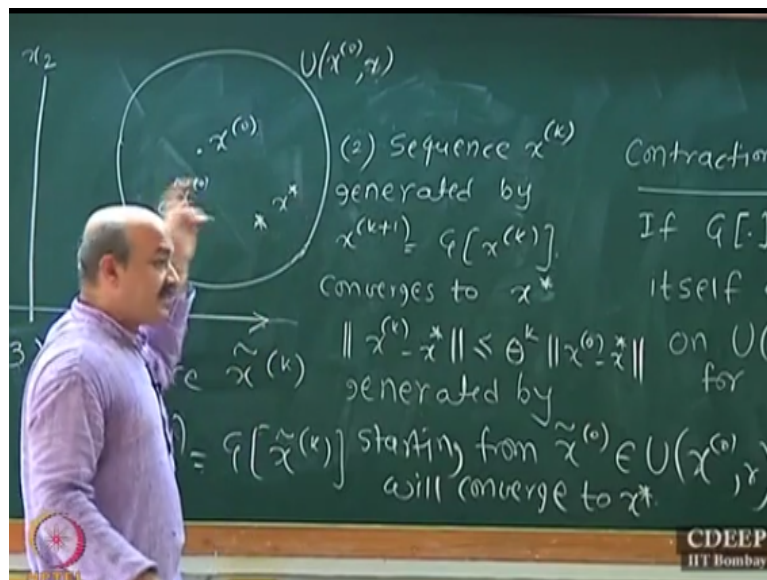 x₂
U(x⁽⁰⁾, r)
x⁽⁰⁾
x̃⁽⁰⁾
x*
(2) Sequence x⁽ᵏ⁾
generated by
x⁽ᵏ⁺¹⁾ = G[x⁽ᵏ⁾].
Converges to x*
‖x⁽ᵏ⁾ - x*‖ ≤ θᵏ ‖x⁽⁰⁾ - x*‖
3)
x̃⁽ᵏ⁾ generated by
= G[x̃⁽ᵏ⁾] starting from x̃⁽⁰⁾ ∈ U(x⁽⁰⁾, r)
will converge to x*.
Contraction
If G[.]
itself
on U(
for
CDEEP
IIT Bombay